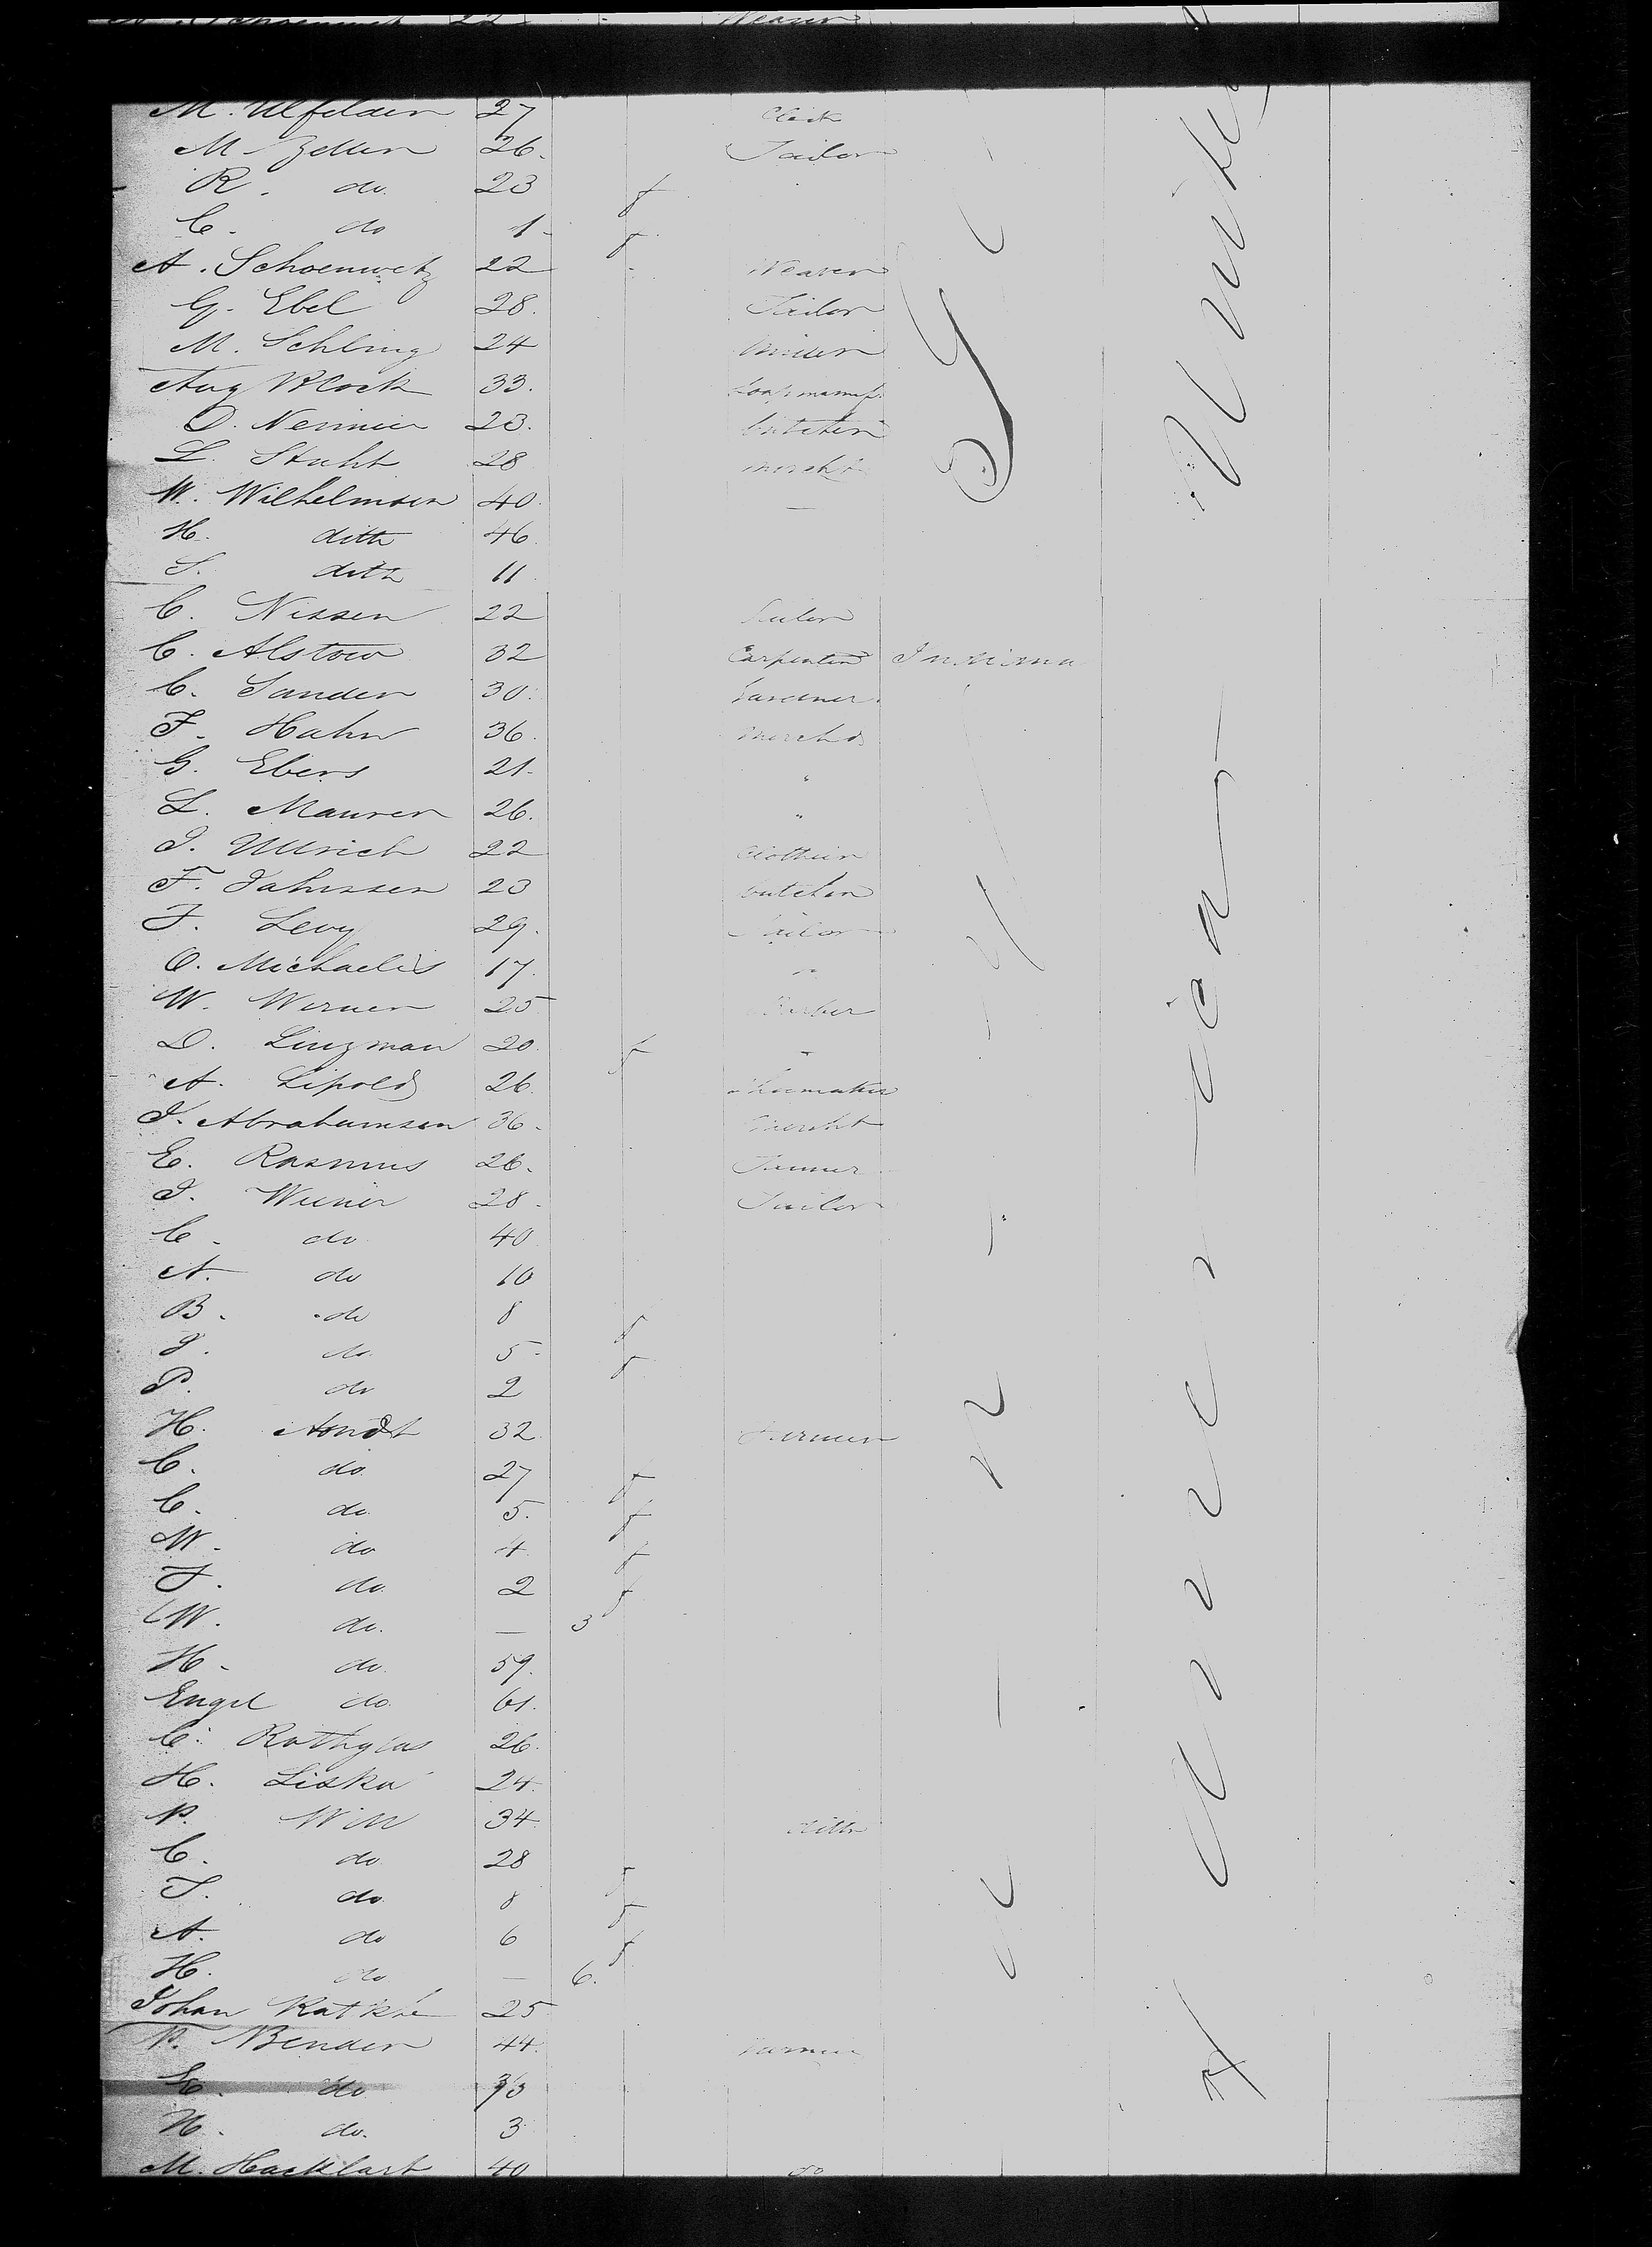 22 Weaver
M. Ulfelder 27 Clerk
M Zeller 26. Tailor
R. do. 23
C. do 1
A. Schoenwetz 22 Weaver
G. Ebel 28. Tailor
M. Schling 24
Aug Block 33. Soapmanuf.
D. 23. butcher
L. Stuht 28 mercht
W. Wilhelmsen 40. —
H. ditto 46.
S. ditto 11.
C. Nissen 22 Tailor
C. Alstow 32 Carpenter Indiana
C. Sander 30. Gardner.
F. Hahn 36. mercht
G. Ebers 21. "
L. Maurer 26. "
J. Ullrich 22 Clothier
F. Jahnssen 23 butcher
F. Levy 29. Tailor
O. Michaelis 17. "
W. Werner 25 Barber
D. Linzman 20. "
A. Lipold 26. Shoemaker
J. Abrahamsen 36. mercht
E. Rasmus 26. Tanner
J. Wiener 28. Tailor
C. do 40
A. do 10
B. do 8
J. do. 5.
P. do 2
H. Arndt 32 Farmer
C. do. 27
C. do. 5.
W. do 4.
F. do. 2
W. do. — 3
H. do. 59.
Engel do. 61.
C. Rothglas 26.
H. Liska 24.
P. Will 34. ditto
C. do 28
T. do. 8
A. do 6
H. do — 6.
Johan Ratkke 25
P. Bender 44. Farmer
E. do
H. do. 3
M. Hacklart 40 do